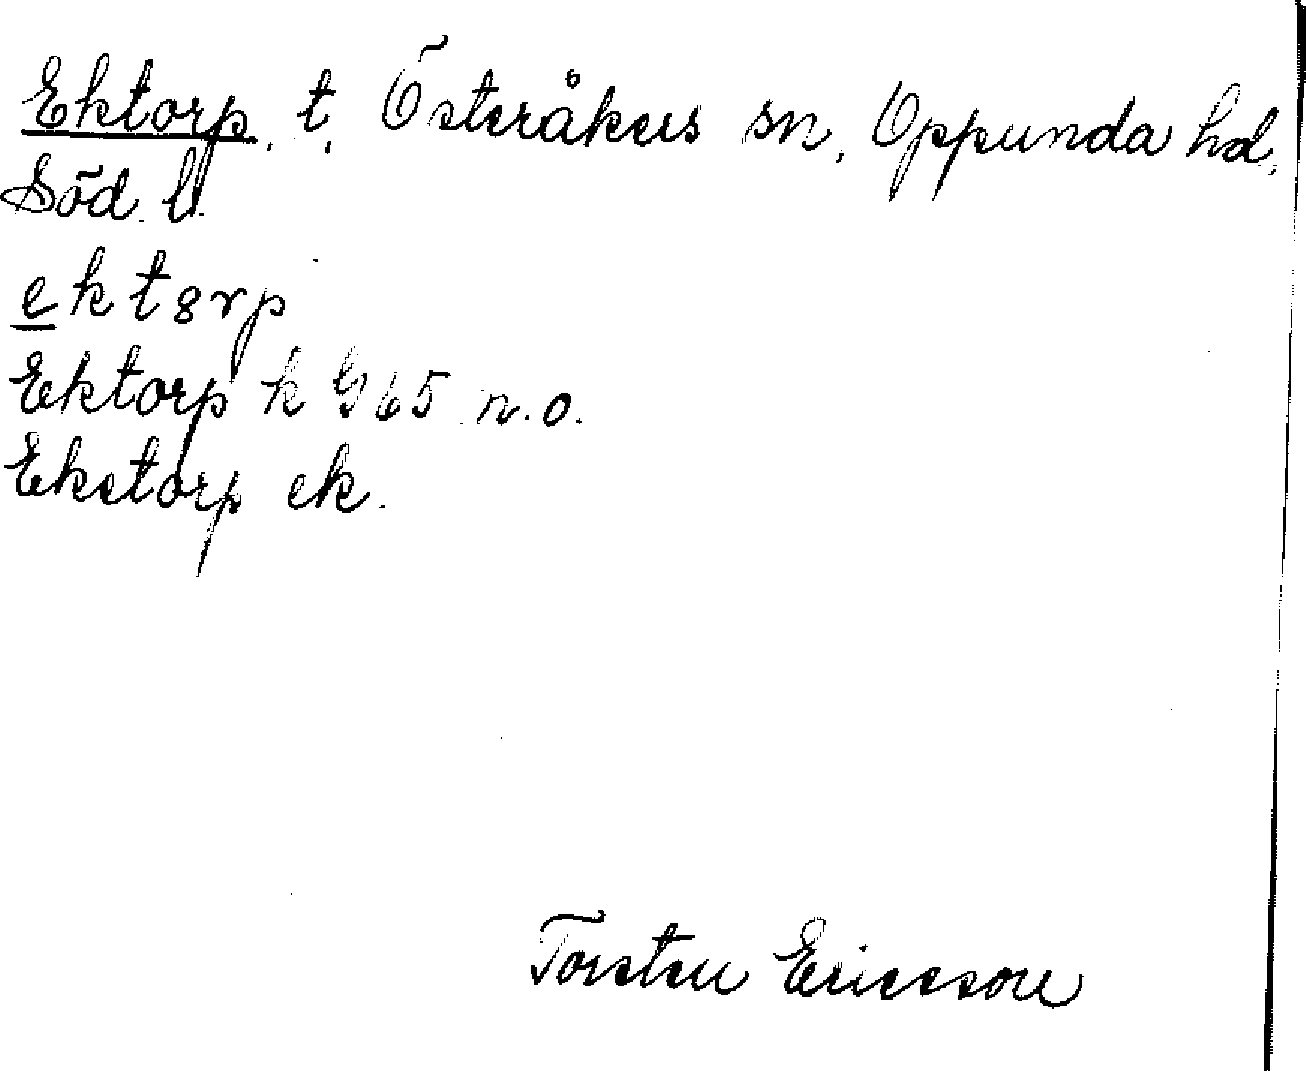 Ektorp, t, Österåkers sn, Oppunda hd,
Söd. l.
ektȣrp
Ektorp k G 65 n.o.
Ekstorp ek.
Torsten Ericsson